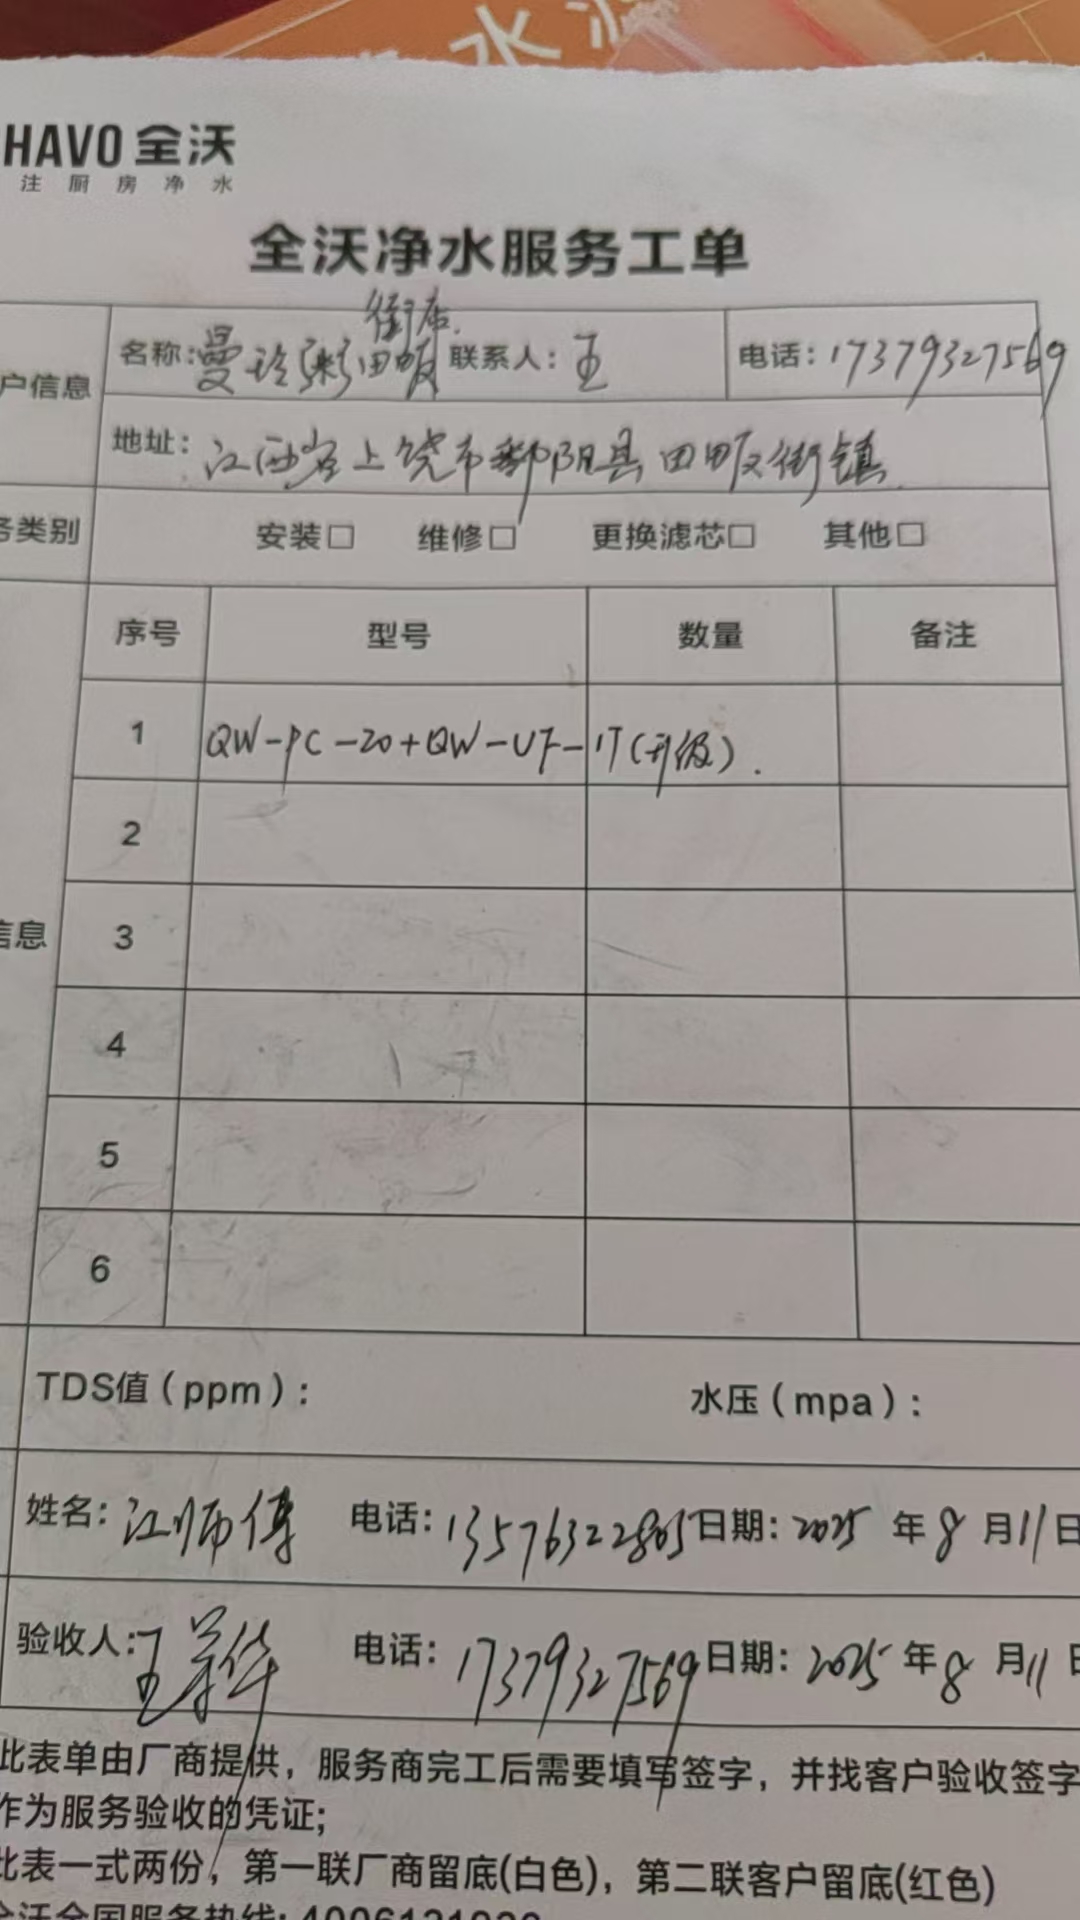 水
HAVO 全沃
注厨房净水
全沃净水服务工单
户信息
名称:曼玲粥田畈街店.
联系人:王
电话:17379327569
地址:江西省上饶市鄱阳县田畈街镇
务类别
安装□ 维修□ 更换滤芯□ 其他□
序号 型号 数量 备注
1 QW-PC-20+QW-UF-1T(升级).
2
信息
3
4
5
6
TDS值(ppm): 水压(mpa):
姓名:江师傅 电话:13576322805 日期:2025年8月11日
验收人:王 华 电话:17379327569 日期:2025年8月11日
此表单由厂商提供,服务商完工后需要填写签字,并找客户验收签字
作为服务验收的凭证;
此表一式两份,第一联厂商留底(白色),第二联客户留底(红色)
全沃全国服务热线: